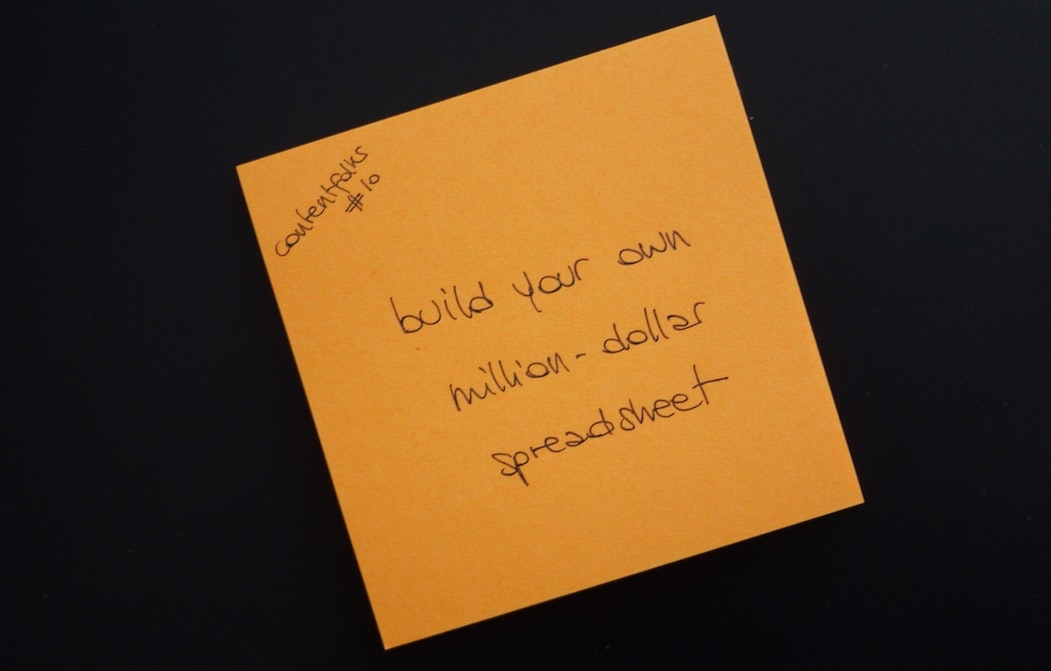 contentfolks
#10
build your own
million-dollar
spreadsheet